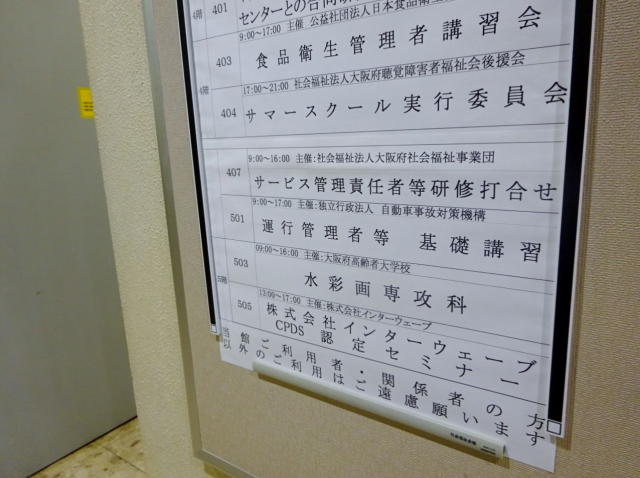 401
センターとの合同
4階
9:00～17:00 主催 公益社団法人日本食品衛生
403
食品衛生管理者講習会
4階
17:00～21:00 社会福祉法人大阪府聴覚障害者福祉会後援会
404
サマースクール実行委員会
9:00～16:00 主催:社会福祉法人大阪府社会福祉事業団
407
サービス管理責任者等研修打合せ
9:00～17:00 主催:独立行政法人 自動車事故対策機構
501
運行管理者等 基礎講習
09:00～16:00 主催:大阪府高齢者大学校
503
水彩画専攻科
5階
13:00～17:00 主催:株式会社インターウェーブ
505
株式会社インターウェーブ
CPDS 認定セミナー
当館ご利用者・関係者の方
以外のご利用はご遠慮願います